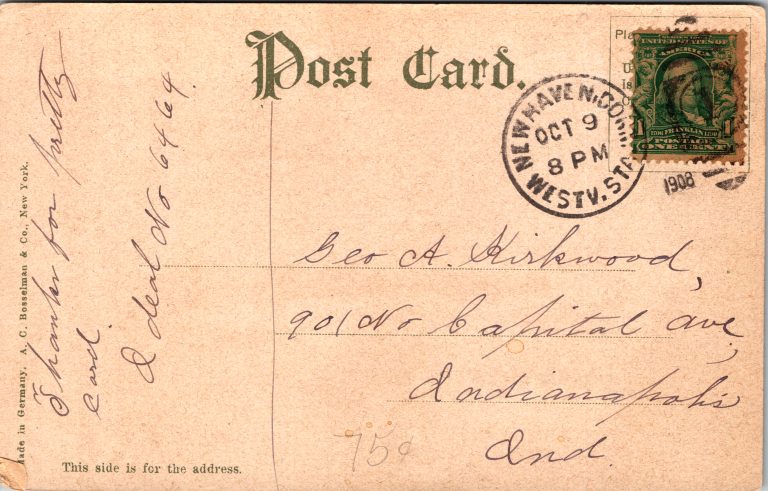 Post Card.
Pla
U
Is
NEW HAVEN, CONN.
OCT 9
8 PM
WESTV. STA.
1908
SERIES 1902
UNITED STATES OF
AMERICA
1 FRANKLIN 1
POSTAGE
ONE CENT
Geo A. Kirkwood,
901 No Capital ave,
Indianapolis
Ind.
Thanks for pretty
Card.
Ideal No 6464
Made in Germany, A. C. Bosselman & Co., New York.
This side is for the address.
75¢